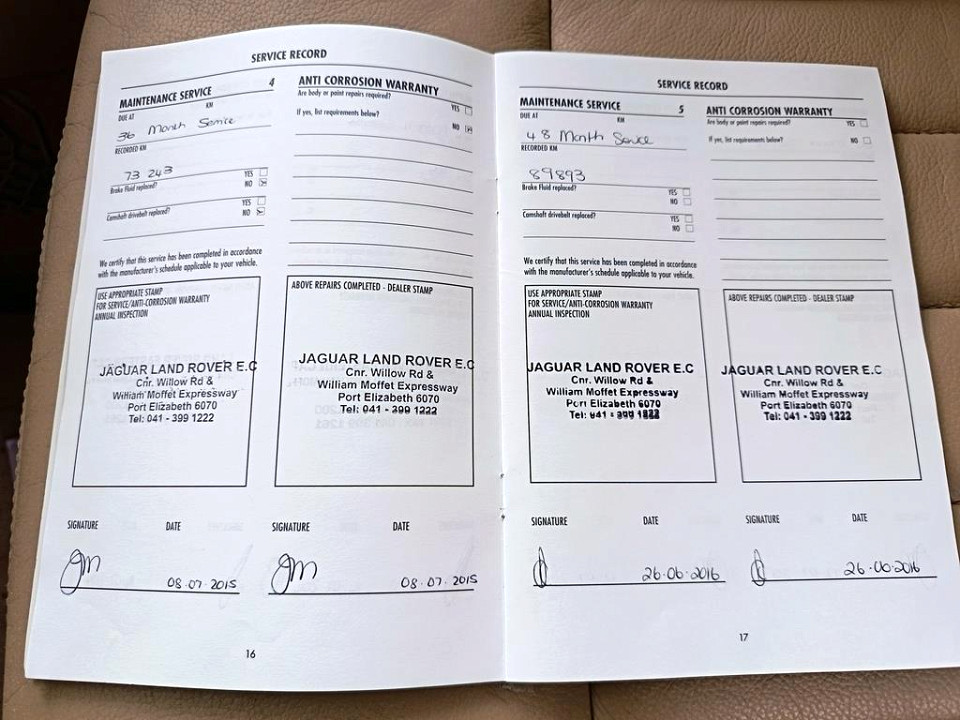 SERVICE RECORD
MAINTENANCE SERVICE 4
DUE AT KM
36 Month Service
RECORDED KM
73 243
Brake Fluid replaced?
YES
NO
Camshaft drivebelt replaced?
YES
NO
We certify that this service has been completed in accordance
with the manufacturer's schedule applicable to your vehicle.
USE APPROPRIATE STAMP
FOR SERVICE/ANTI-CORROSION WARRANTY
ANNUAL INSPECTION
JAGUAR LAND ROVER E.C
Cnr. Willow Rd &
William Moffet Expressway
Port Elizabeth 6070
Tel: 041 - 399 1222
SIGNATURE DATE
08.07.2015
ANTI CORROSION WARRANTY
Are body or paint repairs required?
YES
If yes, list requirements below?
NO
ABOVE REPAIRS COMPLETED - DEALER STAMP
JAGUAR LAND ROVER E.C
Cnr. Willow Rd &
William Moffet Expressway
Port Elizabeth 6070
Tel: 041 - 399 1222
SIGNATURE DATE
08.07.2015
16
SERVICE RECORD
MAINTENANCE SERVICE 5
DUE AT KM
48 Month Service
RECORDED KM
89893
Brake Fluid replaced?
YES
NO
Camshaft drivebelt replaced?
YES
NO
We certify that this service has been completed in accordance
with the manufacturer's schedule applicable to your vehicle.
USE APPROPRIATE STAMP
FOR SERVICE/ANTI-CORROSION WARRANTY
ANNUAL INSPECTION
JAGUAR LAND ROVER E.C
Cnr. Willow Rd &
William Moffet Expressway
Port Elizabeth 6070
Tel: 041 - 399 1222
SIGNATURE DATE
26.06.2016
ANTI CORROSION WARRANTY
Are body or paint repairs required?
YES
If yes, list requirements below?
NO
ABOVE REPAIRS COMPLETED - DEALER STAMP
JAGUAR LAND ROVER E.C
Cnr. Willow Rd &
William Moffet Expressway
Port Elizabeth 6070
Tel: 041 - 399 1222
SIGNATURE DATE
26.06.2016
17